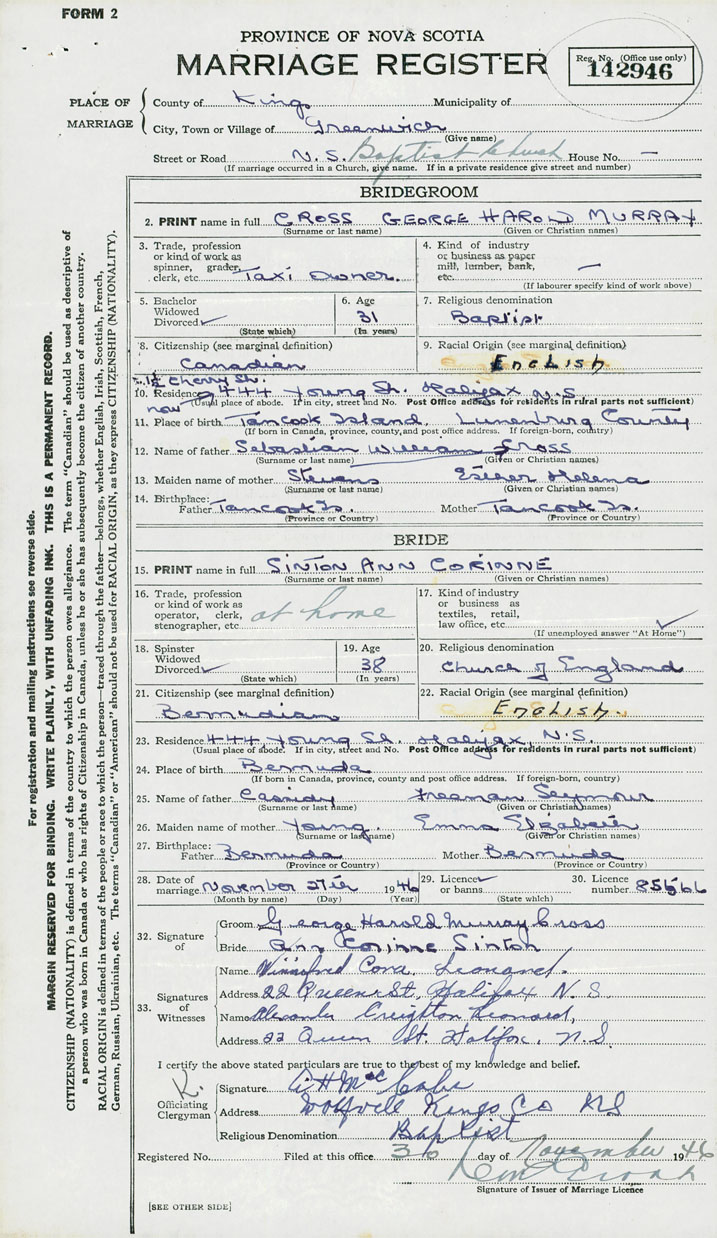 FORM 2
PROVINCE OF NOVA SCOTIA
MARRIAGE REGISTER
Reg. No. (Office use only)
142946
PLACE OF MARRIAGE
County of Kings Municipality of
City, Town or Village of Greenwich
(Give name)
Street or Road N.S. Baptist Church House No. —
(If marriage occurred in a Church, give name. If in a private residence give street and number)
BRIDEGROOM
2. PRINT name in full CROSS GEORGE HAROLD MURRAY
(Surname or last name) (Given or Christian names)
3. Trade, profession or kind of work as spinner, grader, clerk, etc. Taxi Owner.
4. Kind of industry or business as paper mill, lumber, bank, etc. —
(If labourer specify kind of work above)
5. Bachelor Widowed Divorced ✓
(State which)
6. Age 31
(In years)
7. Religious denomination
Baptist
8. Citizenship (see marginal definition)
Canadian
9. Racial Origin (see marginal definition)
English
Cherry St.
10. Residence 444 Young St. Halifax N.S.
now (Usual place of abode. If in city, street and No. Post Office address for residents in rural parts not sufficient)
11. Place of birth Tancook Island, Lunenburg County
(If born in Canada, province, county, and post office address. If foreign-born, country)
12. Name of father Sebastian William Cross
(Surname or last name) (Given or Christian names)
13. Maiden name of mother Stevens Esther Helena
(Surname or last name) (Given or Christian names)
14. Birthplace: Father Tancook Is. Mother Tancook Is.
(Province or Country) (Province or Country)
BRIDE
15. PRINT name in full SINTON ANN CORINNE
(Surname or last name) (Given or Christian names)
16. Trade, profession or kind of work as operator, clerk, stenographer, etc. at home
17. Kind of industry or business as textiles, retail, law office, etc. ✓
(If unemployed answer "At Home")
18. Spinster Widowed Divorced ✓
(State which)
19. Age 38
(In years)
20. Religious denomination
Church of England
21. Citizenship (see marginal definition)
Bermudian
22. Racial Origin (see marginal definition)
English.
23. Residence 444 Young St. Halifax, N.S.
(Usual place of abode. If in city, street and No. Post Office address for residents in rural parts not sufficient)
24. Place of birth Bermuda
(If born in Canada, province, county and post office address. If foreign-born, country)
25. Name of father Cassidy Freeman Seymour
(Surname or last name) (Given or Christian names)
26. Maiden name of mother Young. Emma Elizabeth
(Surname or last name) (Given or Christian names)
27. Birthplace: Father Bermuda Mother Bermuda
(Province or Country) (Province or Country)
28. Date of marriage November 27th 1946
(Month by name) (Day) (Year)
29. Licence ✓ or banns
(State which)
30. Licence number 85566
32. Signature of
Groom George Harold Murray Cross
Bride Ann Corinne Sinton
33. Signatures of Witnesses
Name Winnifred Cora Leonard.
Address 22 Queen St, Halifax N.S.
Name Alexander Creighton Leonard,
Address 22 Queen St. Halifax, N.S.
I certify the above stated particulars are true to the best of my knowledge and belief.
R.
Officiating Clergyman
Signature A H McCabe
Address Wolfville Kings Co NS
Religious Denomination Baptist
Registered No. Filed at this office 30 day of November 1946
Signature of Issuer of Marriage Licence
[SEE OTHER SIDE]
For registration and mailing instructions see reverse side.
MARGIN RESERVED FOR BINDING. WRITE PLAINLY, WITH UNFADING INK. THIS IS A PERMANENT RECORD.
CITIZENSHIP (NATIONALITY) is defined in terms of the country to which the person owes allegiance. The term "Canadian" should be used as descriptive of
a person who was born in Canada or who has rights of Citizenship in Canada, unless he or she has subsequently become the citizen of another country.
RACIAL ORIGIN is defined in terms of the people or race to which the person—traced through the father—belongs, whether English, Irish, Scottish, French,
German, Russian, Ukrainian, etc. The terms "Canadian" or "American" should not be used for RACIAL ORIGIN, as they express CITIZENSHIP (NATIONALITY).